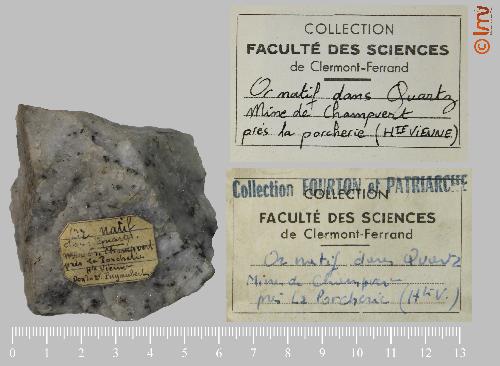 © lmv
COLLECTION
FACULTÉ DES SCIENCES
de Clermont-Ferrand
Or natif dans Quartz
Mine de Champvert
près la porcherie (HTE VIENNE)
Collection FOURTON et PATRIARCHE
COLLECTION
FACULTÉ DES SCIENCES
de Clermont-Ferrand
Or natif dans Quartz
Mine de Champvert
près La Porcherie (Hte V.)
natif
dans quartz
près La Porcherie
Hte Vienne
0 1 2 3 4 5 6 7 8 9 10 11 12 13